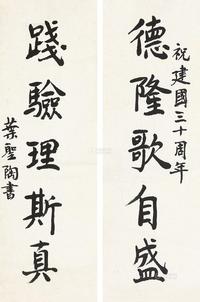 祝建國三十周年
德隆歌自盛
踐驗理斯真
葉聖陶書